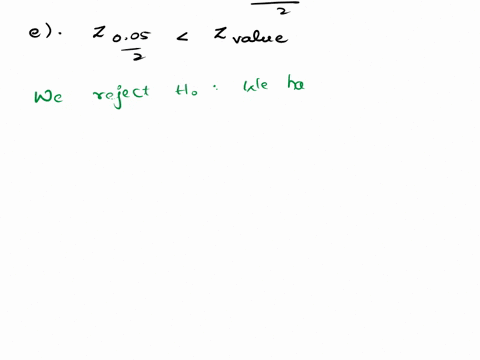 2
e). Z 0.05/2 < Z value
We reject H₀ : We ha